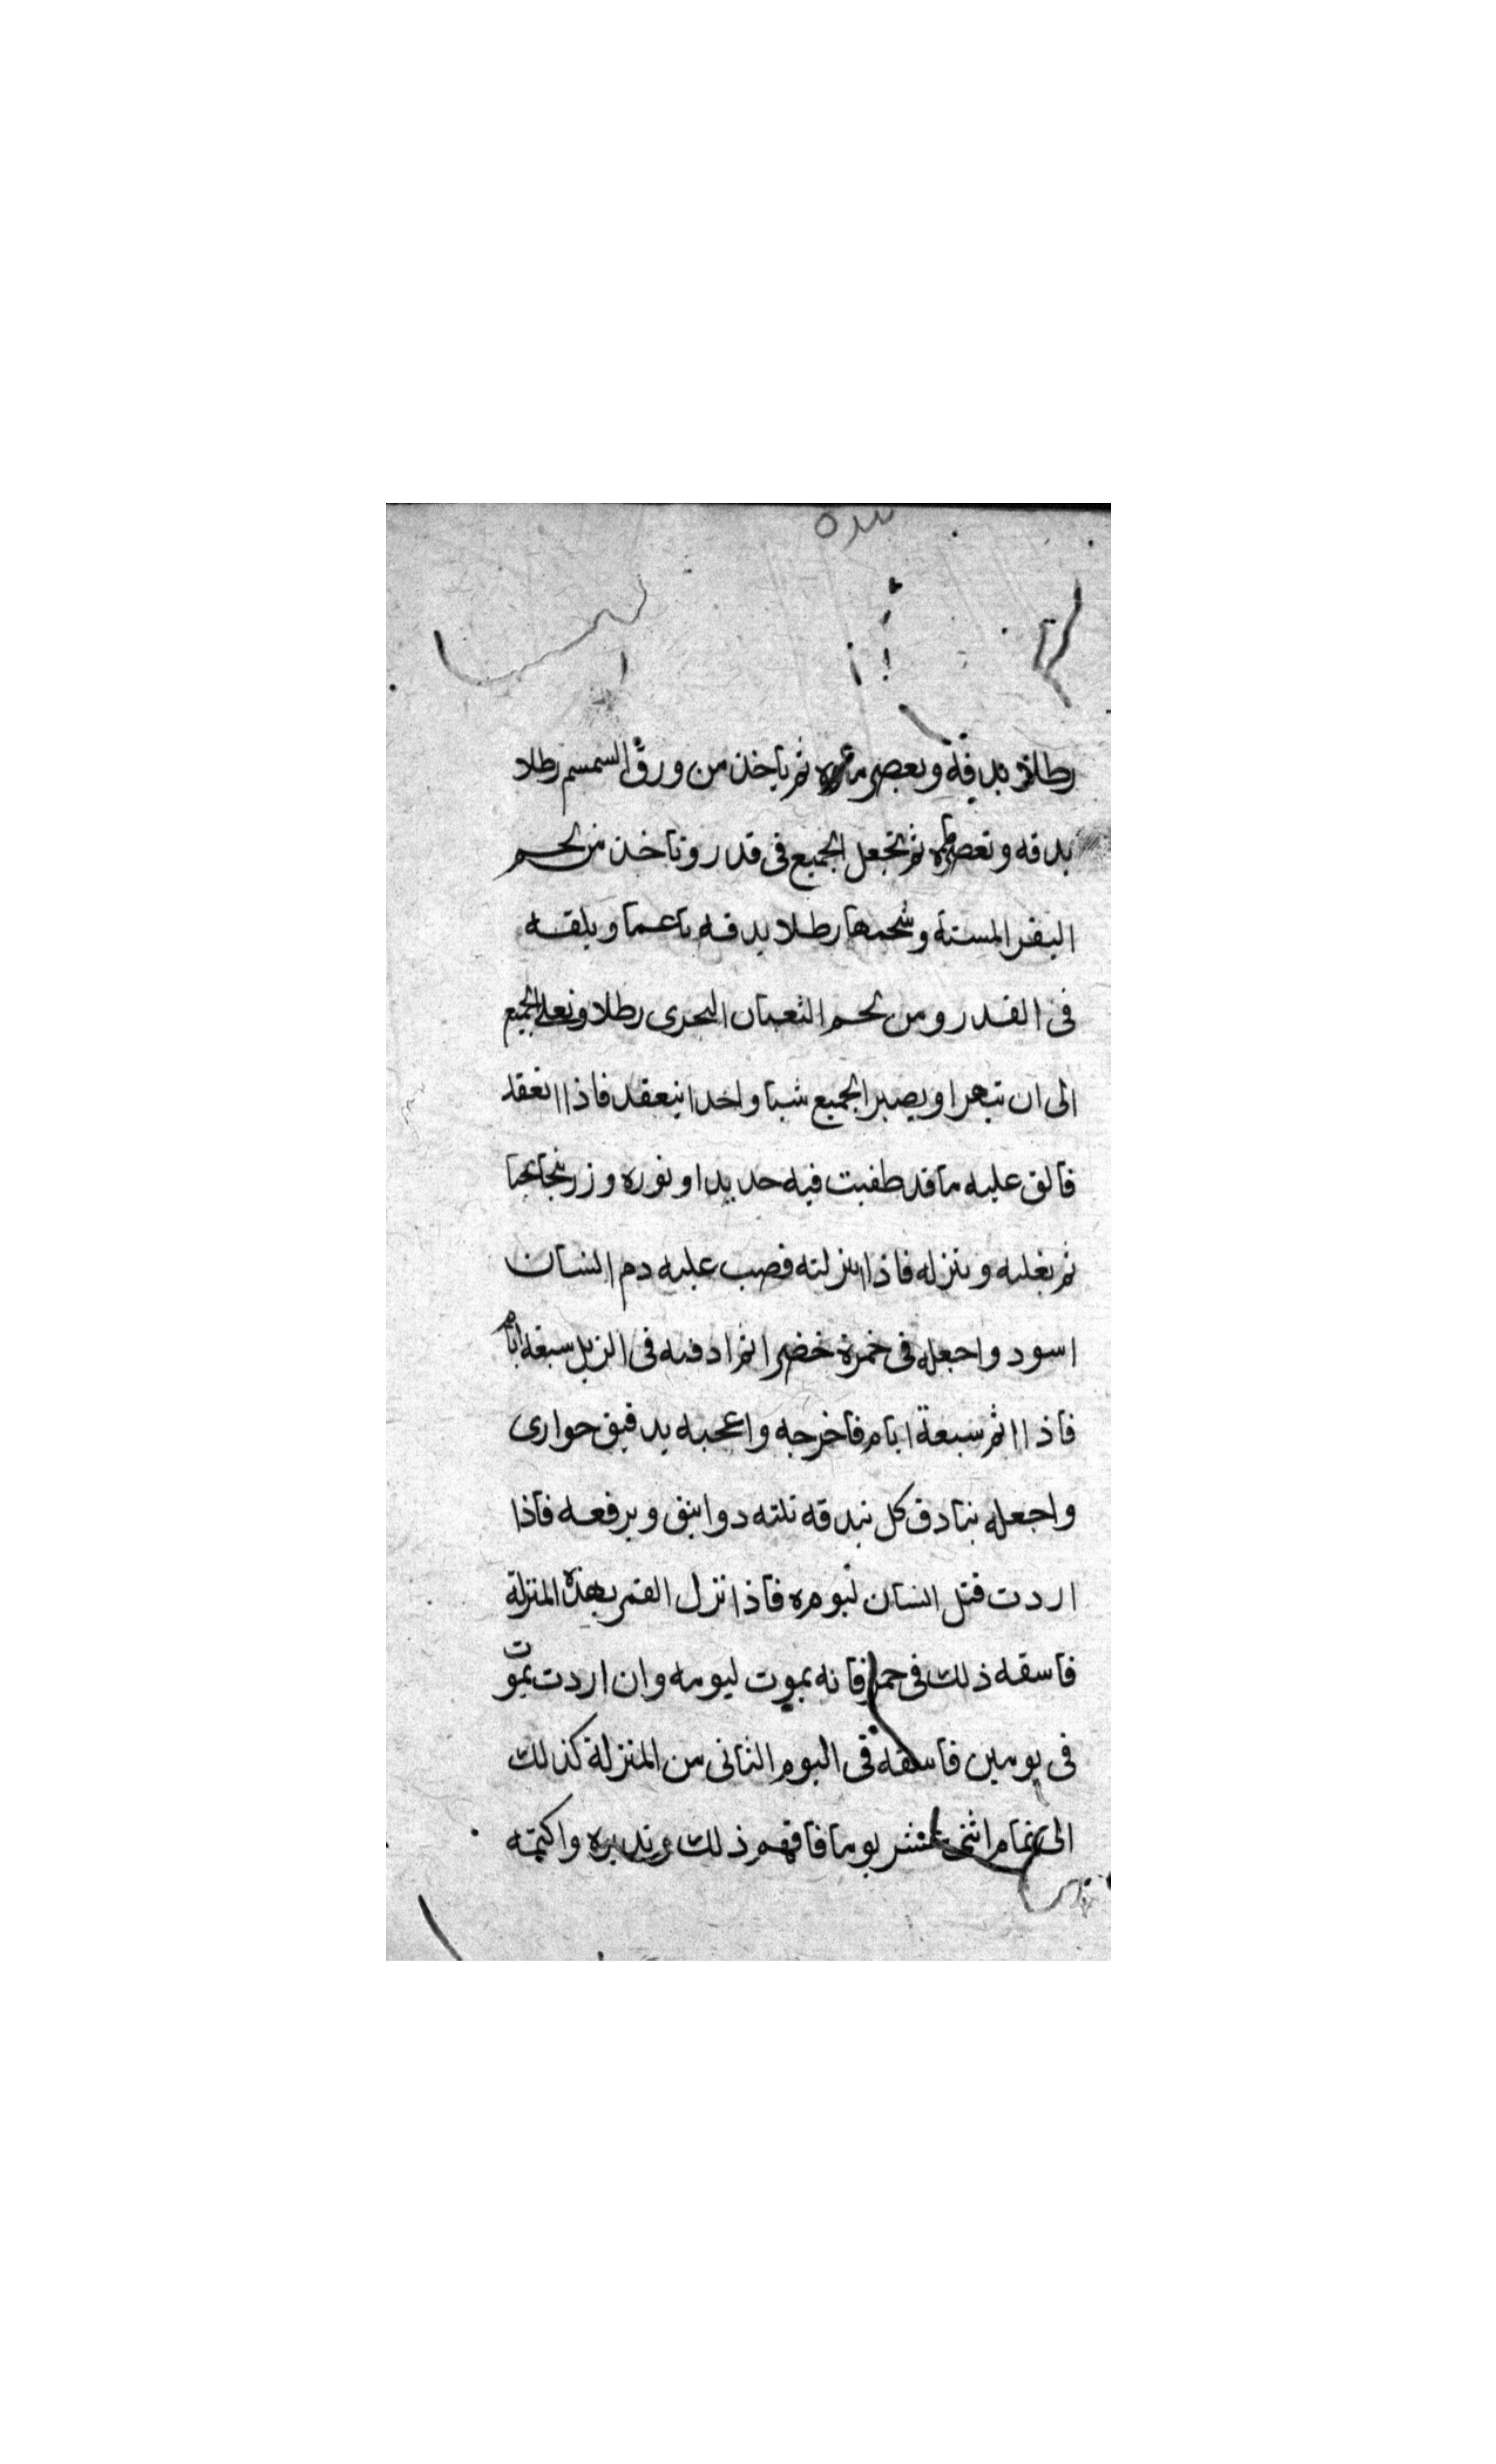 رطلا بدقه وبعصر ماوه ثم ياخذ من ورق السمسم رطلا
بدقه وتعصره ثم تجعل الجميع فى قدر وتاخذ من لحم
البقر المسنة وشحمها رطلا يدقه ناعما ويلقه
فى القدر ومن لحم الثعبان البحرى رطلا ونعلى الجميع
الى ان تبهرا ويصير الجميع شيا واحدا ينعقد فاذا انعقد
فالق عليه ما قد طفيت فيه حديدا ونوره وزرنيخا
ثم بغليه وينزله فاذا انزلته فصب عليه دم انسان
اسود واجعله فى خمرة خضرا ثم ادفنه فى الزبل سبعة ايام
فاذا اتم سبعة ايام فاخرجه واعجنه بدقيق حوارى
واجعله بنادق كل بندقه ثلثه دوانيق ويرفعه فاذا
اردت قتل انسان ليومه فاذا نزل القمر بهذه المنزلة
فاسقه ذلك فى خمر فانه يموت ليومه وان اردت يموت
فى يومين فاسقه فى اليوم الثانى من المنزلة كذلك
الى تمام اثنى عشر يوما فافهم ذلك وتدبره واكتمه